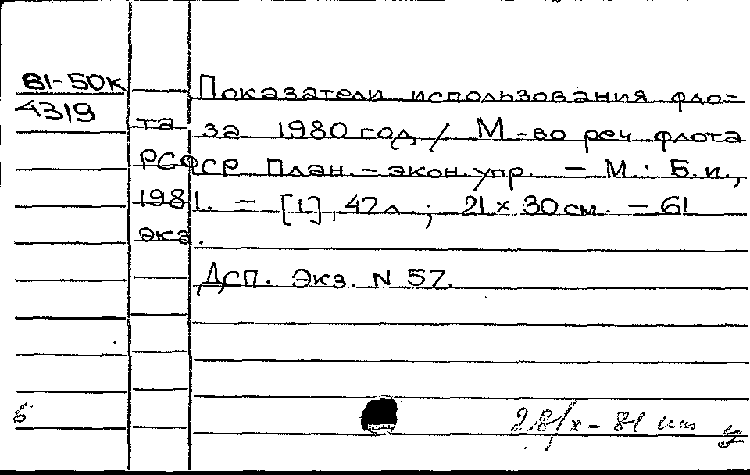 81-50к Показатели использования фло-
4319 та за 1980 год / М-во реч. флота
РСФСР План.-экон. упр. - М.: Б.и.,
1981. - [1], 47л ; 21×30 см. - 61
экз.
Дсп. Экз. N 57.
б 28/х-81